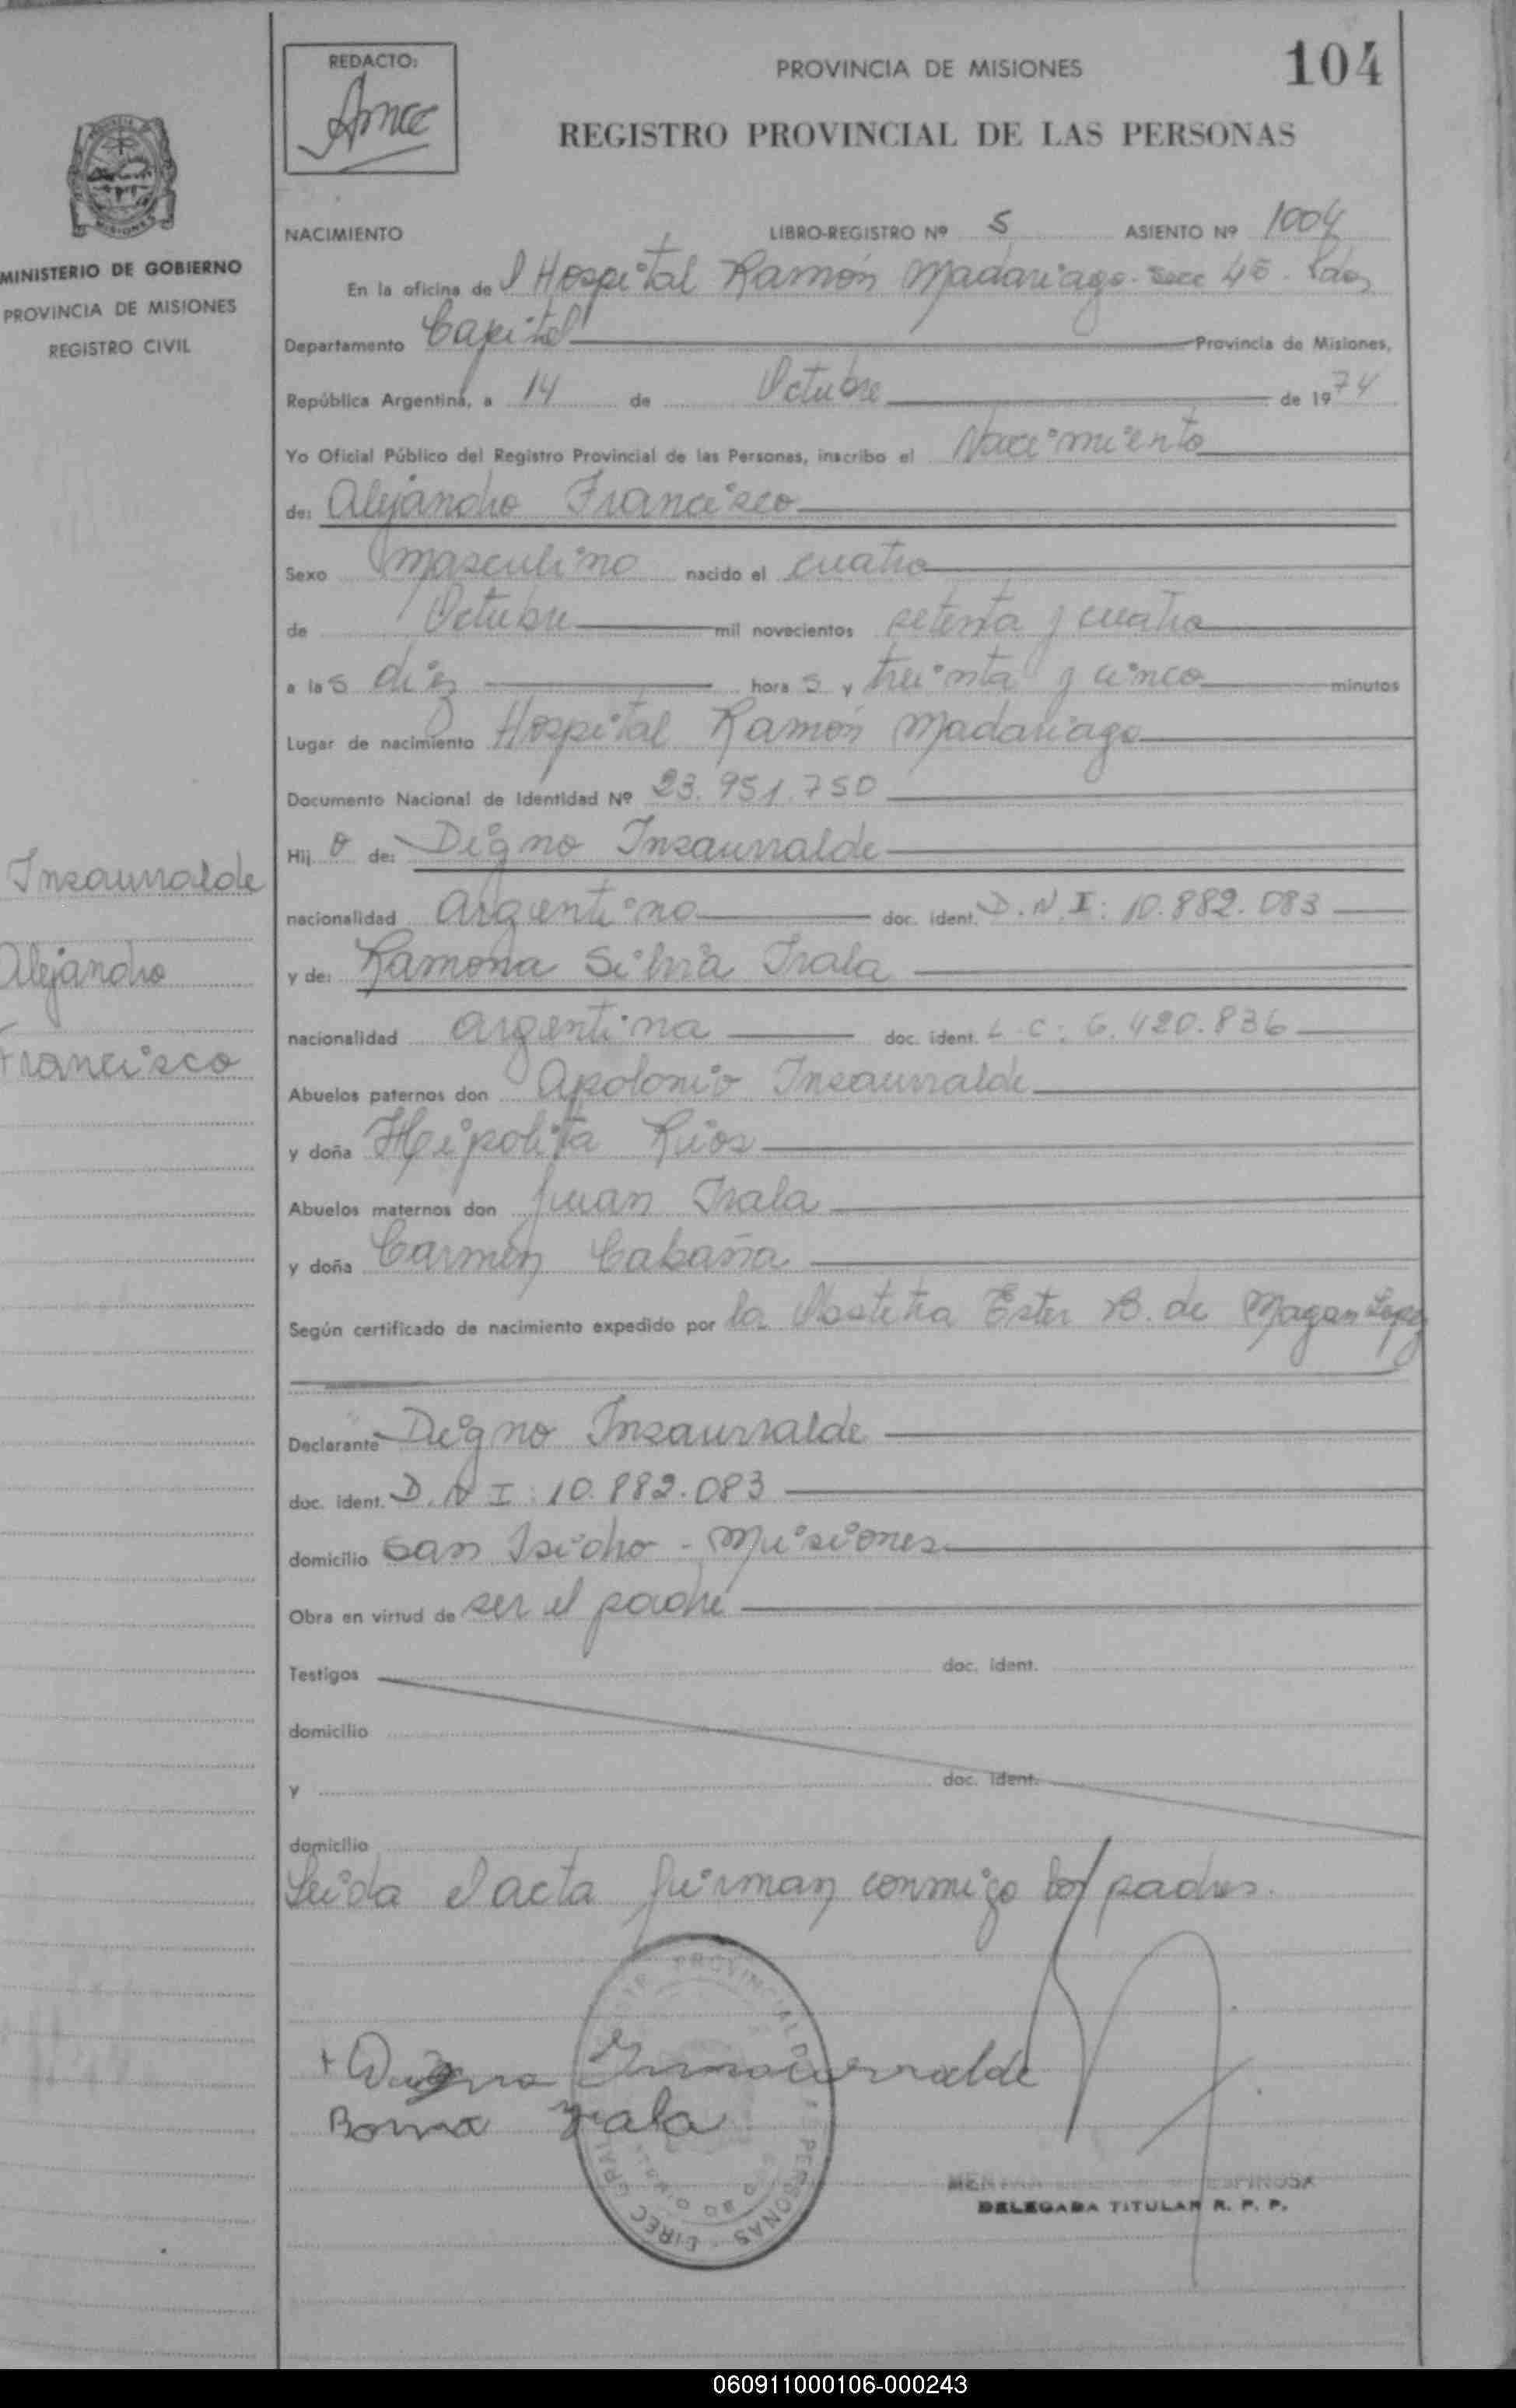 REDACTO:
PROVINCIA DE MISIONES
104
REGISTRO PROVINCIAL DE LAS PERSONAS
MINISTERIO DE GOBIERNO
PROVINCIA DE MISIONES
REGISTRO CIVIL
NACIMIENTO LIBRO-REGISTRO Nº 5 ASIENTO Nº 1004
En la oficina del Hospital Ramón Madariaga - Secc 4ª - Pdas
Departamento Capital Provincia de Misiones,
República Argentina, a 14 de Octubre de 1974
Yo Oficial Público del Registro Provincial de las Personas, inscribo el Nacimiento
de: Alejandro Francisco
Sexo masculino nacido el cuatro
de Octubre mil novecientos setenta y cuatro
a las diez horas y treinta y cinco minutos
Lugar de nacimiento Hospital Ramón Madariaga
Documento Nacional de Identidad Nº 23.951.750
Hijo de: Digno Insaurralde
nacionalidad Argentino doc. ident. D.N.I: 10.882.083
y de: Ramona Silvia Irala
nacionalidad argentina doc. ident. L.C: 6.420.836
Abuelos paternos don Apolonio Insaurralde
y doña Heipolita Rios
Abuelos maternos don Juan Irala
y doña Carmen Cabaña
Según certificado de nacimiento expedido por la Obstetra Ester B. de Magan
Declarante Digno Insaurralde
doc. ident. D.N.I: 10.882.083
domicilio San Isidro - Misiones
Obra en virtud de ser el padre
Testigos doc. ident.
domicilio
y doc. ident.
domicilio
Leida el acta firman conmigo los padres.
Insaurralde
Alejandro
Francisco
Digno Insaurralde
Irala
ESPINOSA
DELEGADA TITULAR R. P. P.
060911000106-000243